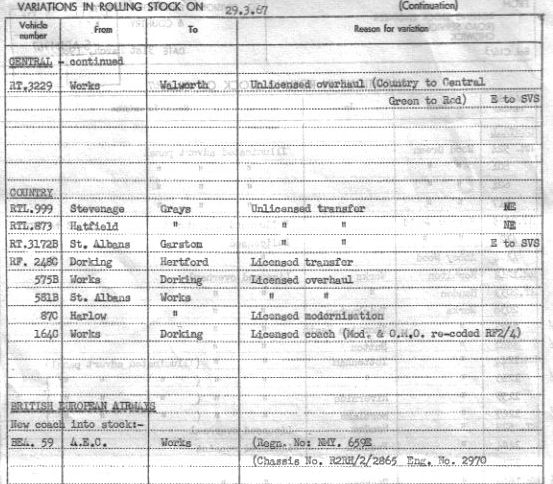 VARIATIONS IN ROLLING STOCK ON 29.3.67 (Continuation)
Vehicle number From To Reason for variation
CENTRAL - continued
RT.3229 Works Walworth Unlicensed overhaul (Country to Central
Green to Red) E to SVS
COUNTRY
RTL.999 Stevenage Grays Unlicensed transfer NE
RTL.873 Hatfield " " " NE
RT.3172B St. Albans Garstom " " E to SVS
RF. 248G Dorking Hertford Licensed transfer
575B Works Dorking Licensed overhaul
581B St. Albans Works " "
87G Harlow " Licensed modernisation
164G Works Dorking Licensed coach (Mod. & O.M.O. re-coded RF2/4)
BRITISH EUROPEAN AIRWAYS
New coach into stock:-
BEA. 59 A.E.C. Works (Regn. No: NMY. 659E
(Chassis No. R2RH/2/2865 Eng. No. 2970